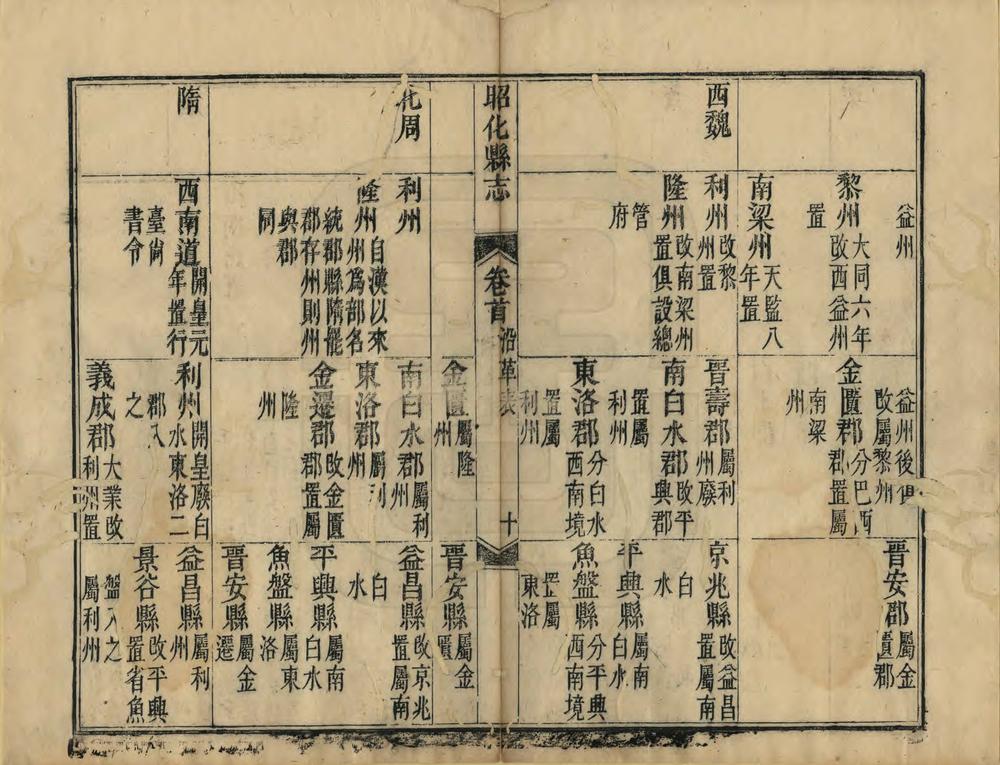 益州
黎州 大同六年改西益州置
南梁州 天監八年置
益州後俱改屬黎州
金匱郡 分巴西郡置屬南梁州
晉安郡 屬金匱郡
西魏
利州 改黎州置
隆州 改南梁州置俱設總管府
晉壽郡 屬利州廢
南白水郡 改平興郡置屬利州
東洛郡 分白水西南境置屬利州
京兆縣 改益昌置屬南白水
平興縣 屬南白水
魚盤縣 分平興西南境置屬東洛
昭化縣志 卷首 沿革表 十
金匱 屬隆州
晉安縣 屬金匱
北周
利州
隆州 自漢以來州爲部名統郡縣隋罷郡存州則州與郡同
南白水郡 屬利州
東洛郡 屬利州
金遷郡 改金匱郡置屬隆州
益昌縣 改京兆置屬南白水
平興縣 屬南白水
魚盤縣 屬東洛
晉安縣 屬金遷
隋
西南道 開皇元年置行臺尚書令
利州 開皇廢白水東洛二郡入之
義成郡 大業改利州置
益昌縣 屬利州
景谷縣 改平興置省魚盤入之屬利州